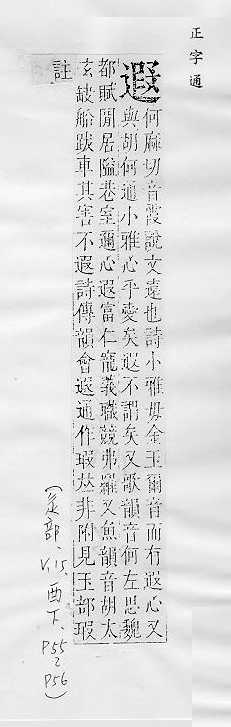 正字通
遐
何麻切音霞說文遠也詩小雅毋金玉爾音而有遐心又
與胡何通小雅心乎愛矣遐不謂矣又歌韻音何左思魏
都賦閒居隘巷室邇心遐富仁寵義職競弗羅又魚韻音胡太
玄缺船跋車其害不遐詩傳韻會遐通作瑕𠀤非附見玉部瑕
註
(辵部、V.15、酉下、P55~P56)